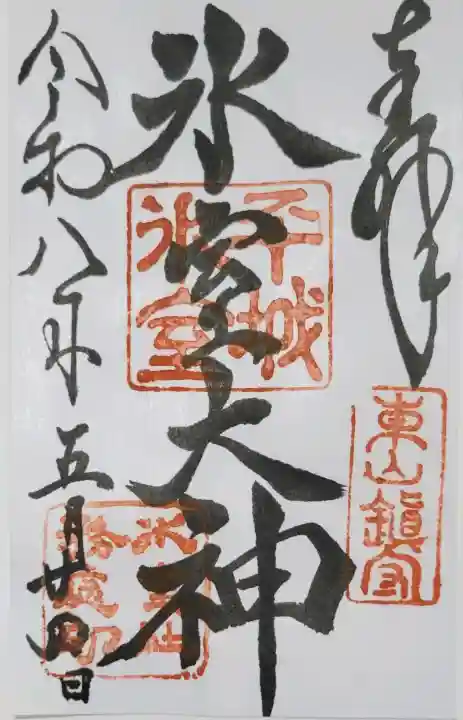 奉拝
東山鎮守
氷室大神
平城
氷室
令和八年五月廿四日
氷室社
務農印